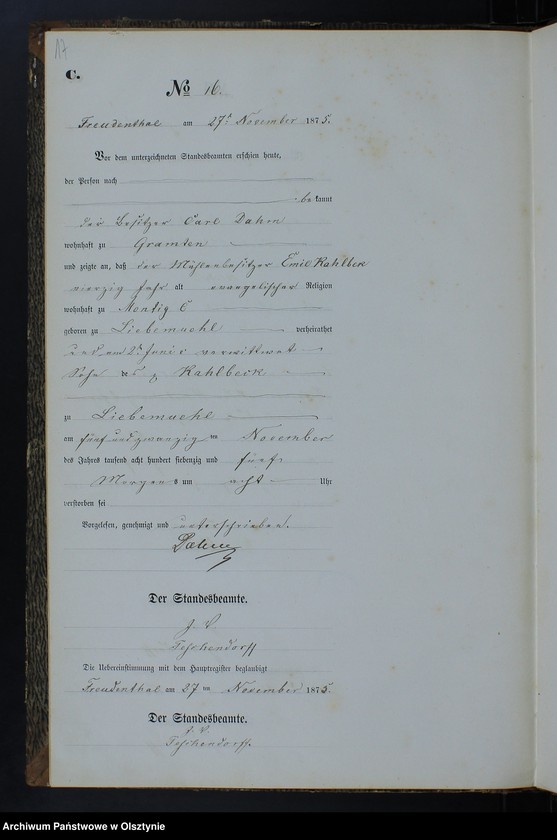 17
C.
No 16.
Freudenthal am 27n November 1875.
Vor dem unterzeichneten Standesbeamten erschien heute,
der Person nach
bekannt
der Besitzer Carl Dahm
wohnhaft zu Gramten
und zeigte an, daß der Mühlenbesitzer Emil Kahlbeck
vierzig Jahr alt evangelischer Religion
wohnhaft zu Montig
geboren zu Liebemuehl verheirathet
und am 2n Juni c verwittwet
Sohn des Kahlbeck
zu Liebemuehl
am fünf und zwanzig ten November
des Jahres tausend acht hundert siebenzig und fünf
Morgens um acht Uhr
verstorben sei
Vorgelesen, genehmigt und unterschrieben.
Dahm
Der Standesbeamte.
J. V.
Teschendorff
Die Uebereinstimmung mit dem Hauptregister beglaubigt
Freudenthal am 27 ten November 1875.
Der Standesbeamte.
J. V.
Teschendorff.
Archiwum Państwowe w Olsztynie